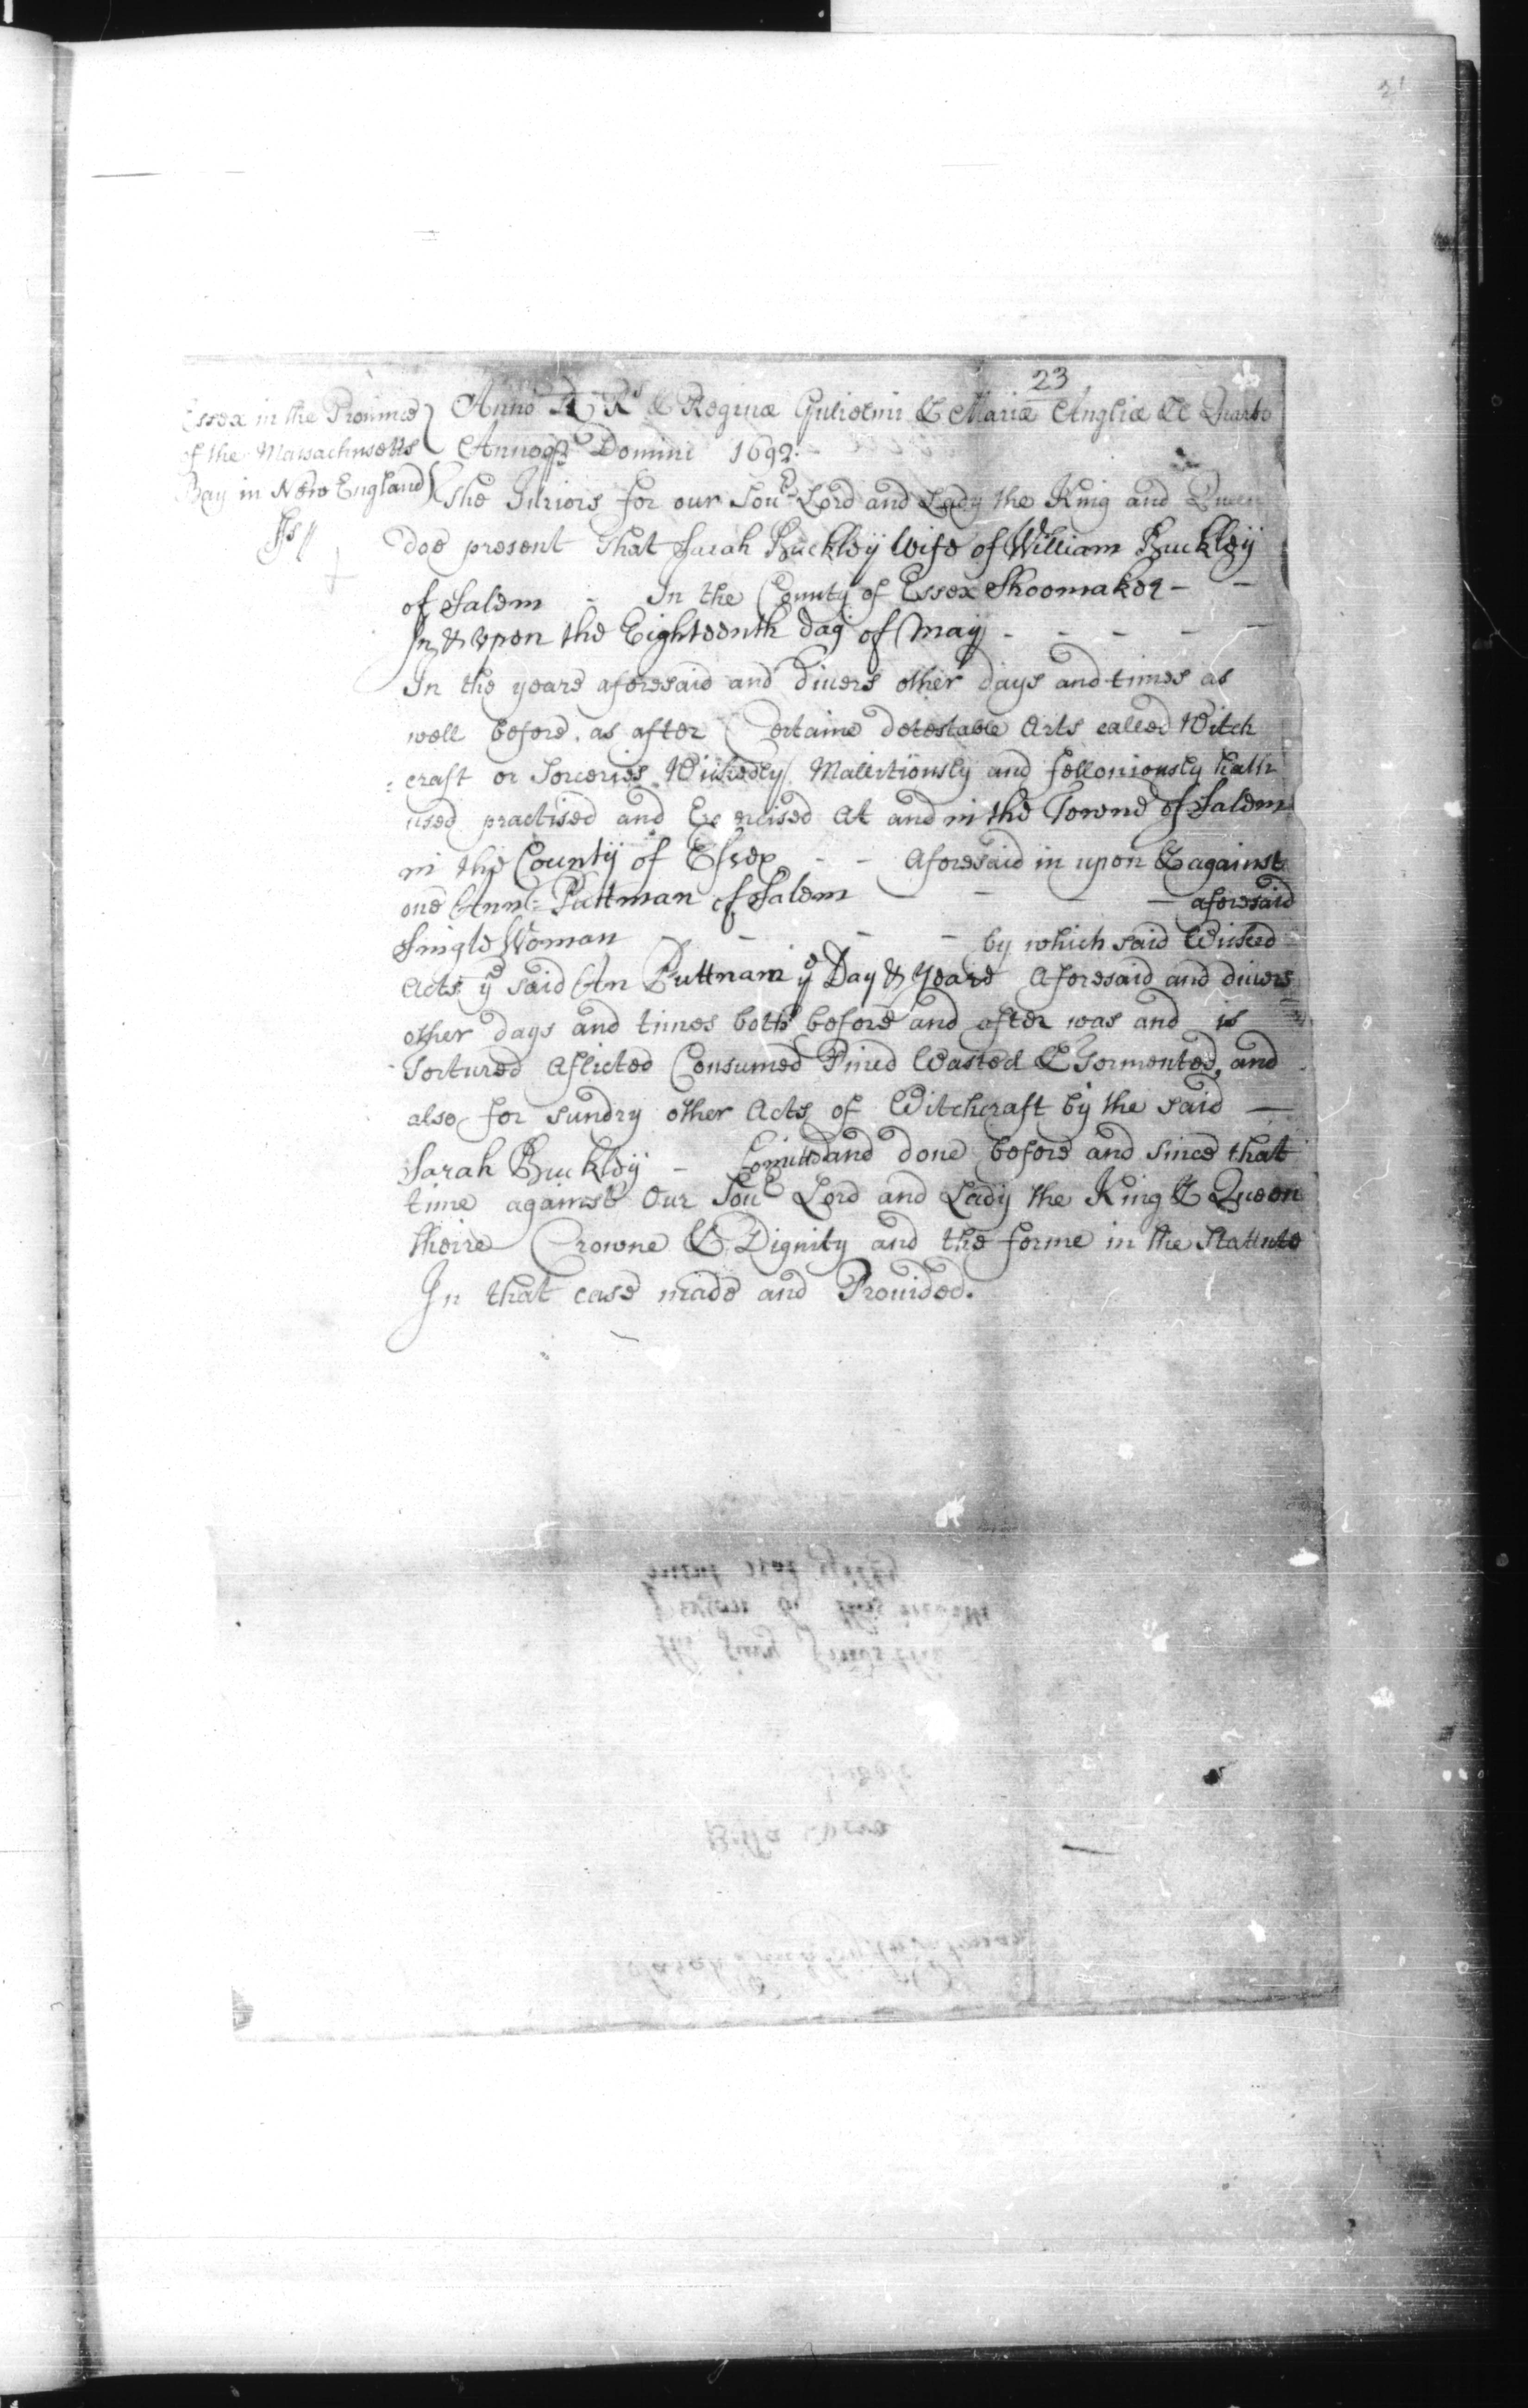 23
Essex in the Prouince
of the Massachusetts
Bay in New England
Ss//
Anno R Rs & Reginæ Gulielmi & Mariæ Angliæ &c Quarto
Annoqe Domini 1692
The Juriors for our Soue Lord and Lady the King and Queen
doe present That Sarah Buckley Wife of William Buckley
of Salem - In the County of Essex Shoomaker - -
In & vpon the Eighteenth day of May - - - - -
In the yeare aforesaid and diuers other days and times as
well before as after Certaine detestable Arts called Witch
=craft or Sorceries Wickedly Malletiously and felloniously hath
used practised and Exercised At and in the Towne of Salem
in the County of Essex - - Aforesaid in upon & against
one Ann: Puttman of Salem - - - aforesaid
Single Woman - - - - by which said Wicked
Acts ye said An Puttnam ye Day & Yeare Aforesaid and diuers
other days and times both before and after was and is
Tortured Aflicted Consumed Pined Wasted & Tormented, and
also for sundry other Acts of Witchcraft by the said —
Sarah Buckley - Comitted and done before and since that
time against Our Soue Lord and Lady the King & Queen
theire Crowne & Dignity and the forme in the Stattute
In that case made and Prouided.